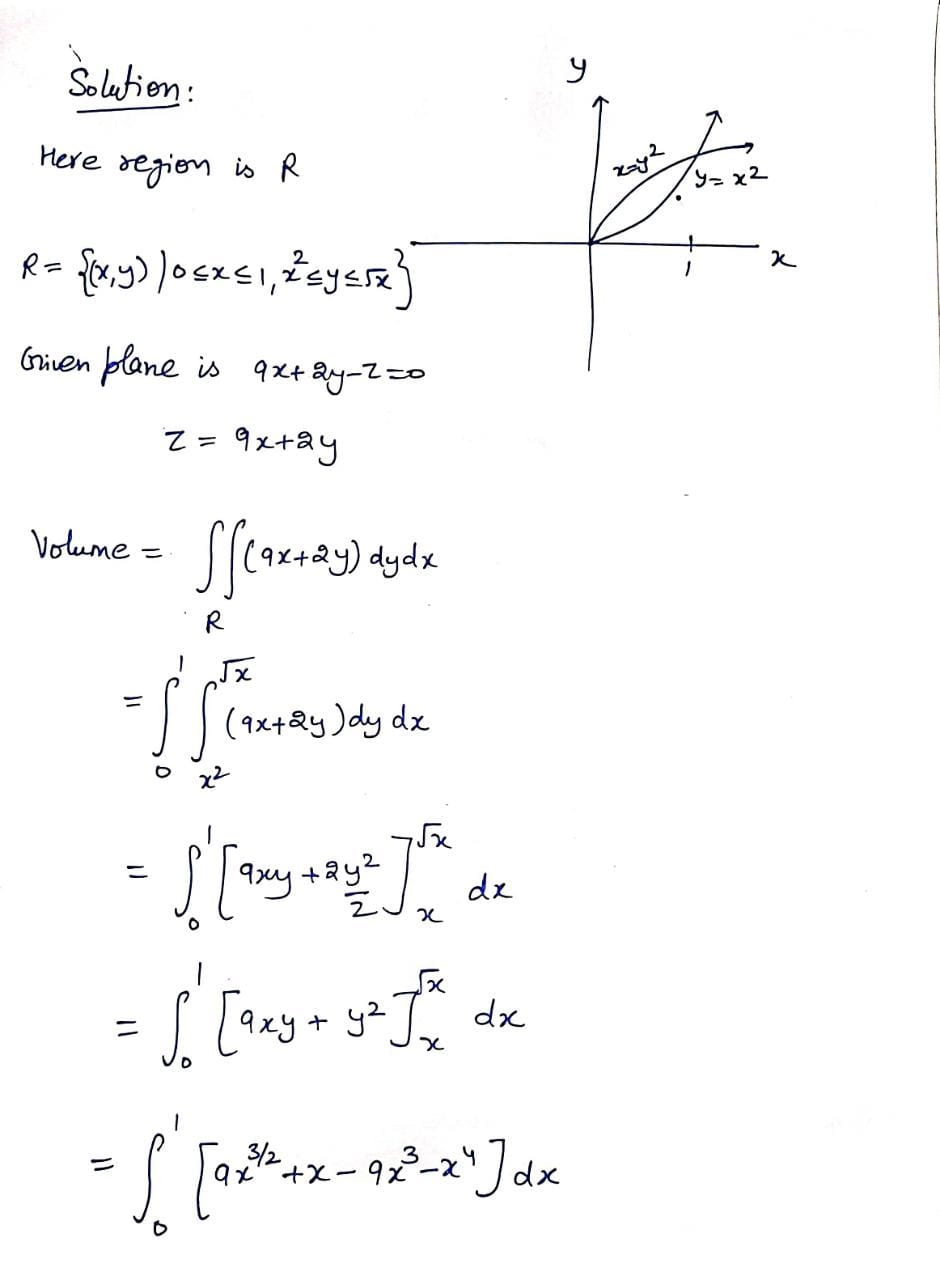 Solution:
Here region is R
R = {(x,y) | 0 ≤ x ≤ 1, x² ≤ y ≤ √x}
y
x=y²
y = x²
1
x
Given plane is 9x+2y-z=0
z = 9x+2y
Volume = ∬_R (9x+2y) dydx
= ∫_0^1 ∫_{x²}^{√x} (9x+2y) dy dx
= ∫_0^1 [9xy + 2y²/2]_x^{√x} dx
= ∫_0^1 [9xy + y²]_x^{√x} dx
= ∫_0^1 [9x^{3/2} + x - 9x³ - x⁴] dx